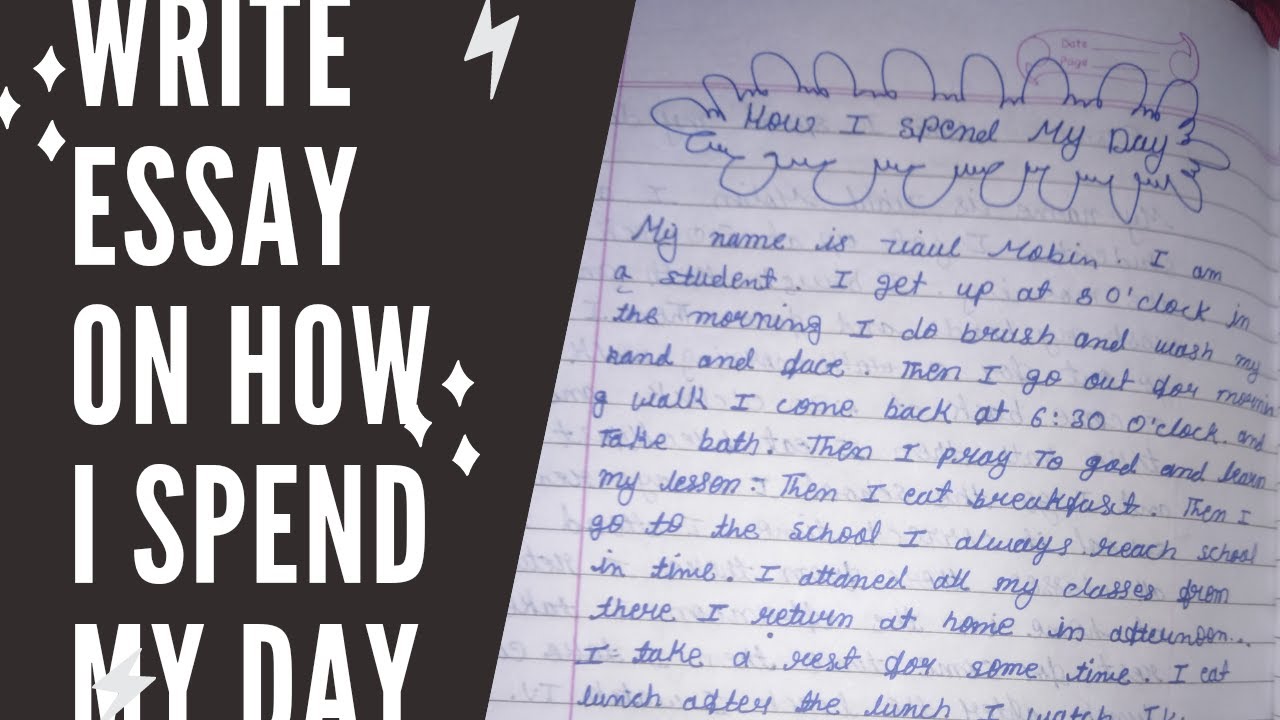 WRITE
ESSAY
ON HOW
I SPEND
MY DAY
Date
Page
How I Spend My Day
My name is Mobin. I am
a student. I get up at 5 O'clock in
the morning I do brush and wash my
hand and face. Then I go out for mornin
g walk I come back at 6:30 O'clock. and
Take bath. Then I pray To god and learn
my lesson. Then I eat breakfast. Then I
go to the school I always reach school
in time. I attaned all my classes from
there I return at home in afternoon..
I take a rest for some time. I eat
lunch after the lunch I watch